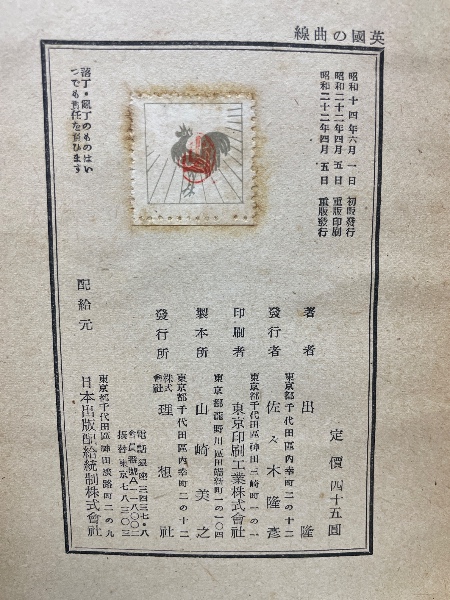 英國の曲線
昭和十四年六月一日 初版發行
昭和二十二年四月五日 重版印刷
昭和二十二年四月五日 重版發行
定價四十五圓
著者 出隆
東京都千代田區內幸町二の十二
發行者 佐々木隆彥
東京都千代田區神田三崎町一の一
印刷者 東京印刷工業株式會社
東京都瀧野川區田端新町一の一〇四
製本所 山崎美之
東京都千代田區內幸町二の十二
發行所 株式會社 理想社
電話銀座三四三七・八
會員番號A一一八〇〇二
振替東京七八三〇三
東京都千代田區神田淡路町二の九
配給元 日本出版配給統制株式會社
落丁・亂丁のものはい
つでも責任を負ひます